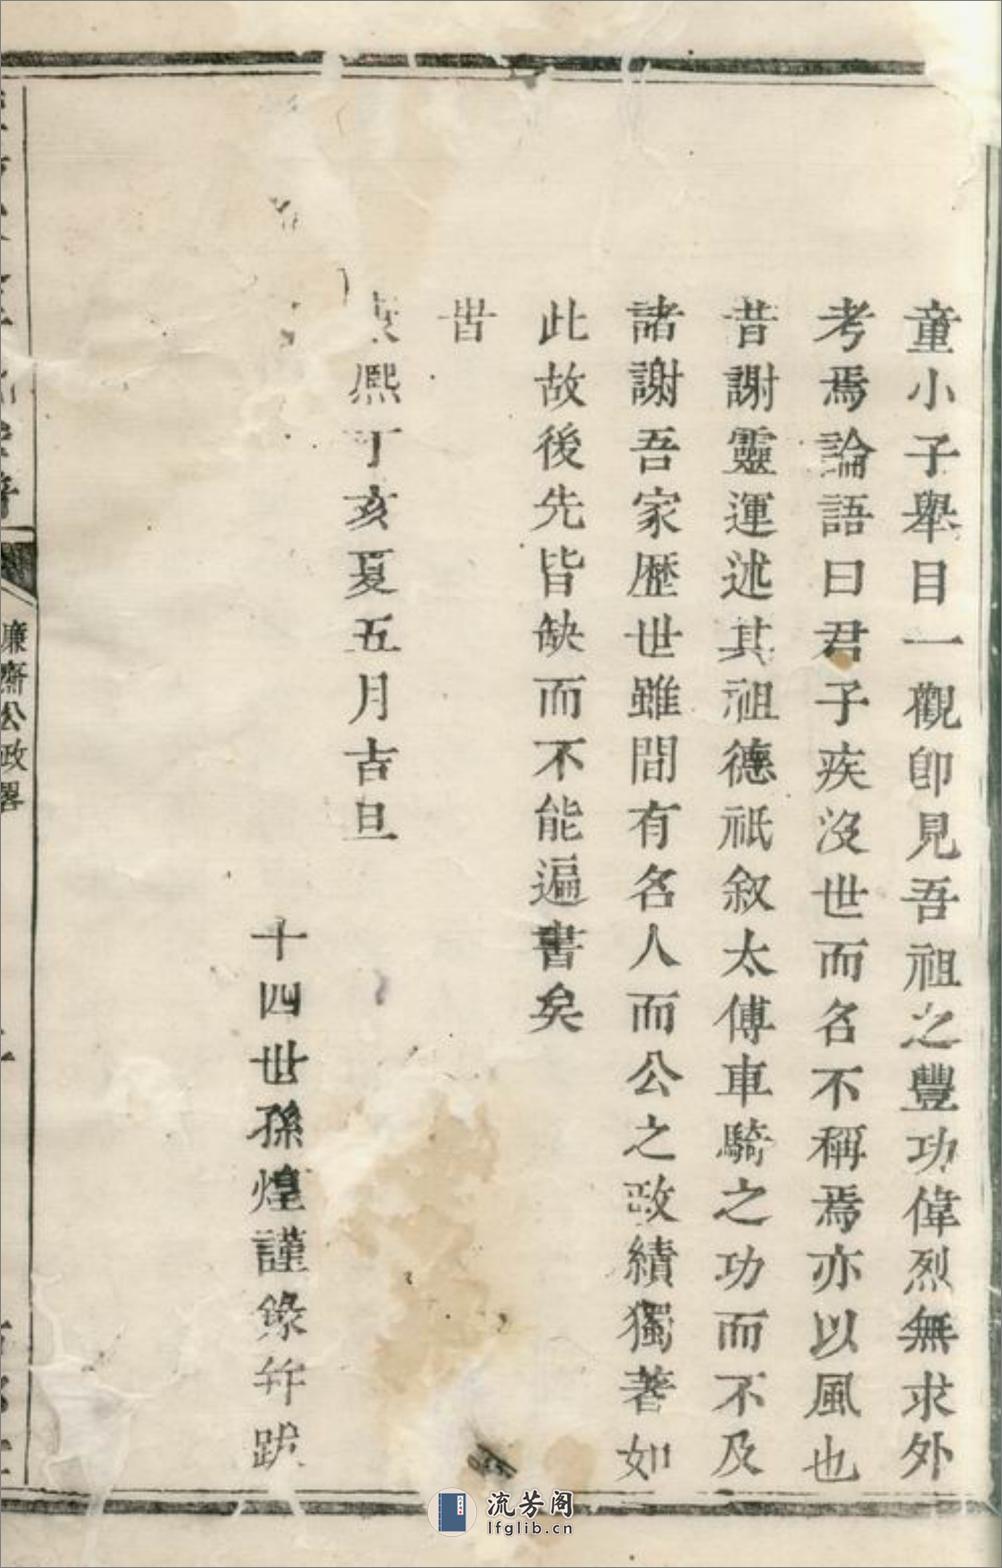 童小子舉目一觀卽見吾祖之豐功偉烈無求外
考焉論語曰君子疾沒世而名不稱焉亦以風也
昔謝靈運述其祖德祇叙太傅車騎之功而不及
諸謝吾家歷世雖間有名人而公之政績獨著如
此故後先皆缺而不能遍書矣
旹
康熙丁亥夏五月吉旦
十四世孫煌謹錄幷跋
廉齋公政畧
流芳阁
lfglib.cn